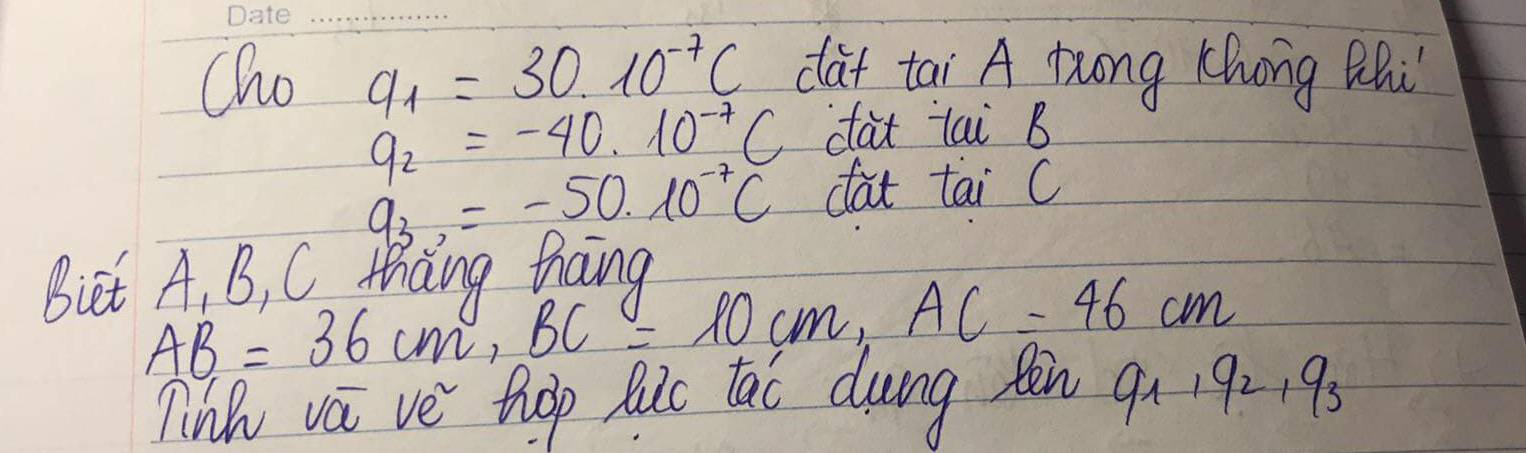 Date ................
Cho q₁ = 30. 10⁻⁷C đặt tại A trong không khí
q₂ = -40. 10⁻⁷C đặt tại B
q₃ = -50. 10⁻⁷C đặt tại C
Biết A, B, C thẳng hàng
AB = 36 cm, BC = 10 cm, AC = 46 cm
Tính và vẽ hợp lực tác dụng lên q₁, q₂, q₃